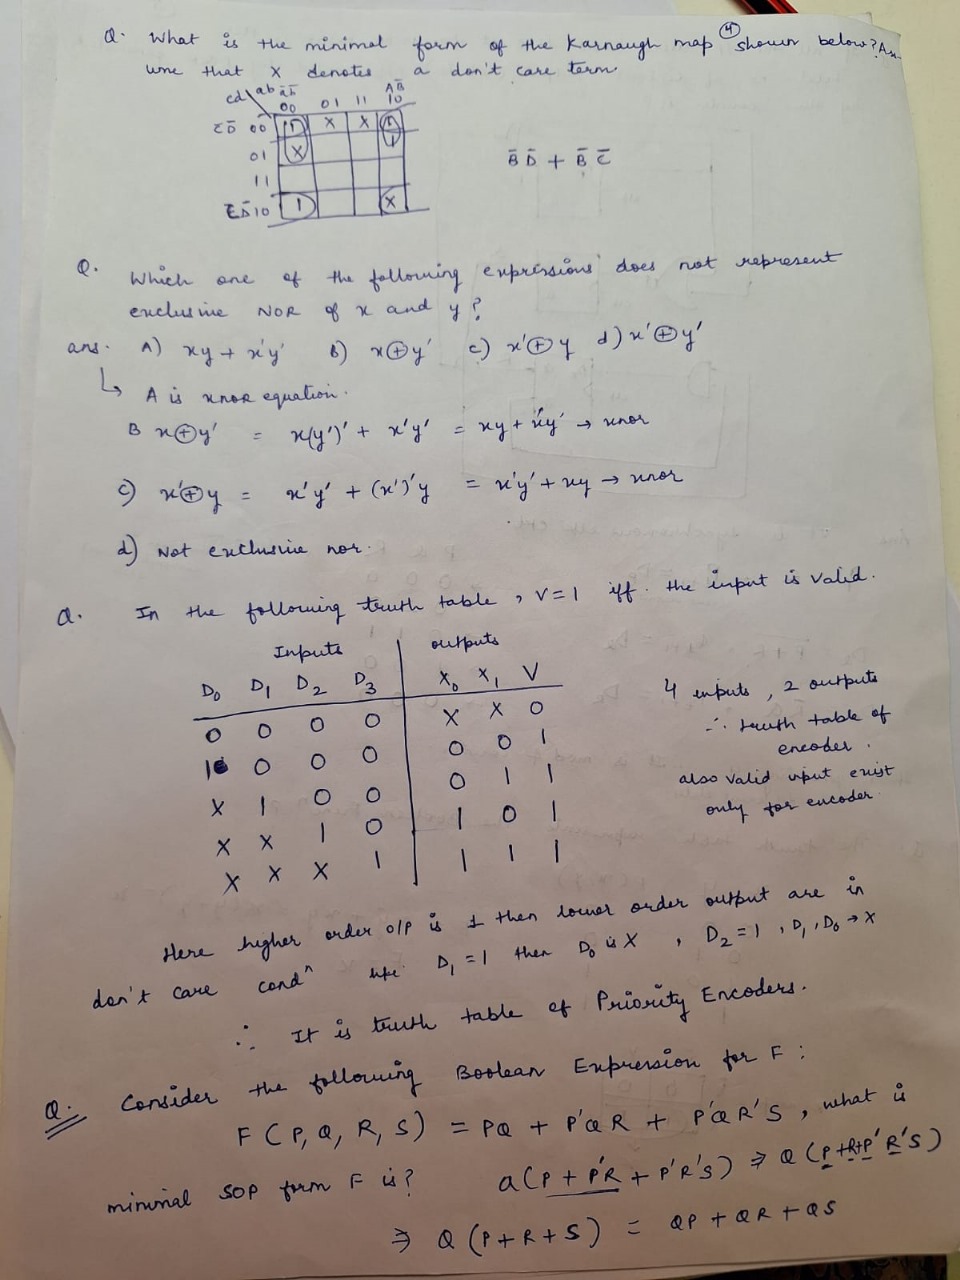 Q. What is the minimal form of the Karnaugh map (4) shown below? Ass
ume that X denotes a don't care term.
cd \ ab a̅b̅ 00 01 11 AB̅ 10
C̅D̅ 00 1 X X 1
01 X 1
11
C̅D̅ 10 1 X
B̅ D̅ + B̅ C̅
Q. Which one of the following expressions does not represent
exclusive NOR of x and y?
ans. A) xy + x'y' B) x⊕y' c) x'⊕y d) x'⊕y'
↳ A is xnor equation.
B x⊕y' = x(y')' + x'y' = xy + x'y' → xnor
c) x'⊕y = x'y' + (x')'y = x'y' + xy → xnor
d) Not exclusive nor.
Q. In the following truth table, V=1 iff. the input is valid.
Inputs outputs
D₀ D₁ D₂ D₃ X₀ X₁ V
0 0 0 0 X X 0
1 0 0 0 0 0 1
X 1 0 0 0 1 1
X X 1 0 1 0 1
X X X 1 1 1 1
4 inputs, 2 outputs
∴ truth table of
encoder.
also valid input exist
only for encoder.
Here higher order o/p is 1 then lower order output are in
don't care condⁿ like D₁ = 1 then D₀ is X, D₂ = 1, D₁, D₀ → X
∴ It is truth table of Priority Encoders.
Q. Consider the following Boolean Expression for F:
F(P, Q, R, S) = PQ + P'QR + P'QR'S, what is
minimal SOP form F is? Q(P + P'R + P'R'S) ⇒ Q(P+R+P'R'S)
⇒ Q(P+R+S) = QP + QR + QS